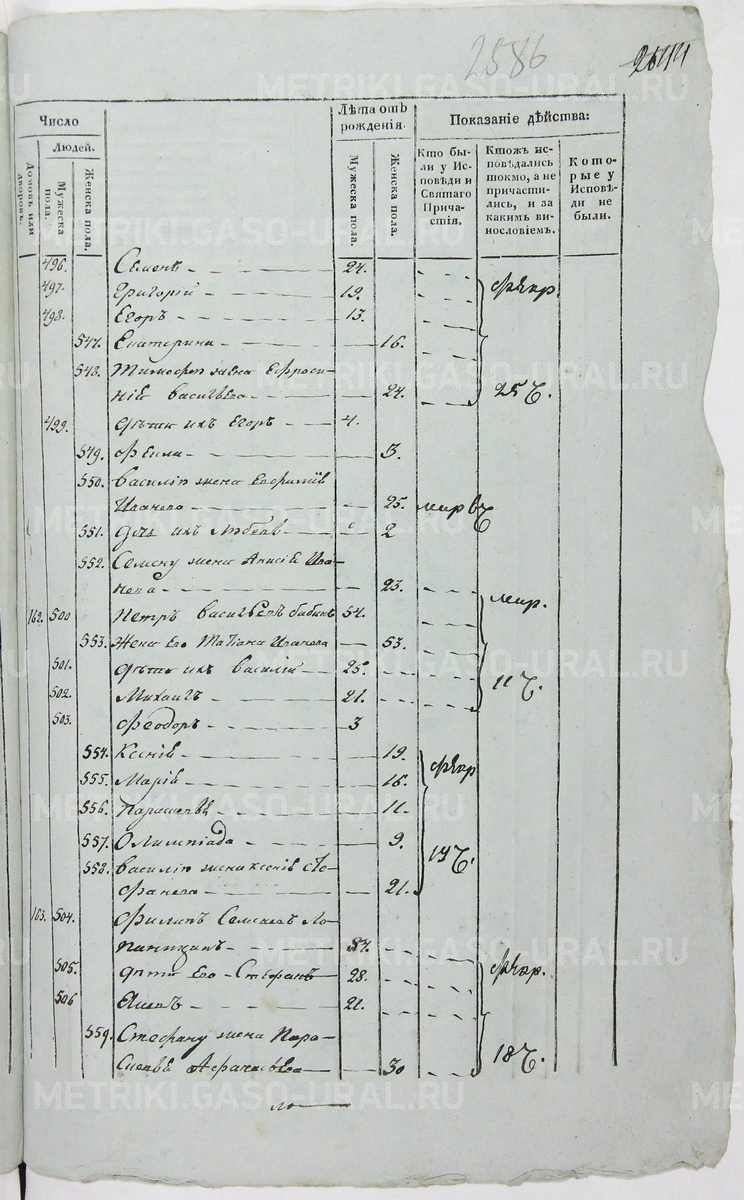 2586
2644
Число
Людей.
Домовъ или дворовъ.
Мужеска пола.
Женска пола.
Лѣта отъ рожденія.
Мужеска пола.
Женска пола.
Показаніе дѣйства:
Кто были у Исповѣди и Святаго Причастія.
Ктожъ исповѣдались токмо, а не причастились, и за какимъ винословіемъ.
Которые у Исповѣди не были.
496. Семенъ 24.
497. Григорій 19.
498. Егоръ 13.
547. Екатерина 16.
548. Тимофею жена Ефроси-
нія Васильева 24.
25
499. дѣти ихъ Егоръ 4.
549. Фекла 3.
550. Василію жена Евфимія
Иванова 25.
551. дочь ихъ Любовь 2
552. Семену жена Анисія Ива-
нова 23.
162. 500 Петръ Васильевъ Бабинъ 54.
553. Жена его Татіана Иванова 53.
501. дѣти ихъ Василій 25.
502. Михаилъ 21.
11
503. Феодоръ 3
554. Ксенія 19.
555. Марія 16.
556. Параскева 11.
557. Олимпіада 9.
558. Василію жена Ксенія Сте-
фанова 21.
163. 504. Филипъ Семеновъ Ло-
57.
505. дѣти его Стефанъ 28.
506 Яковъ 21.
559. Стефану жена Пара-
скева Афанасьева 30
18
METRIKI.GASO-URAL.RU